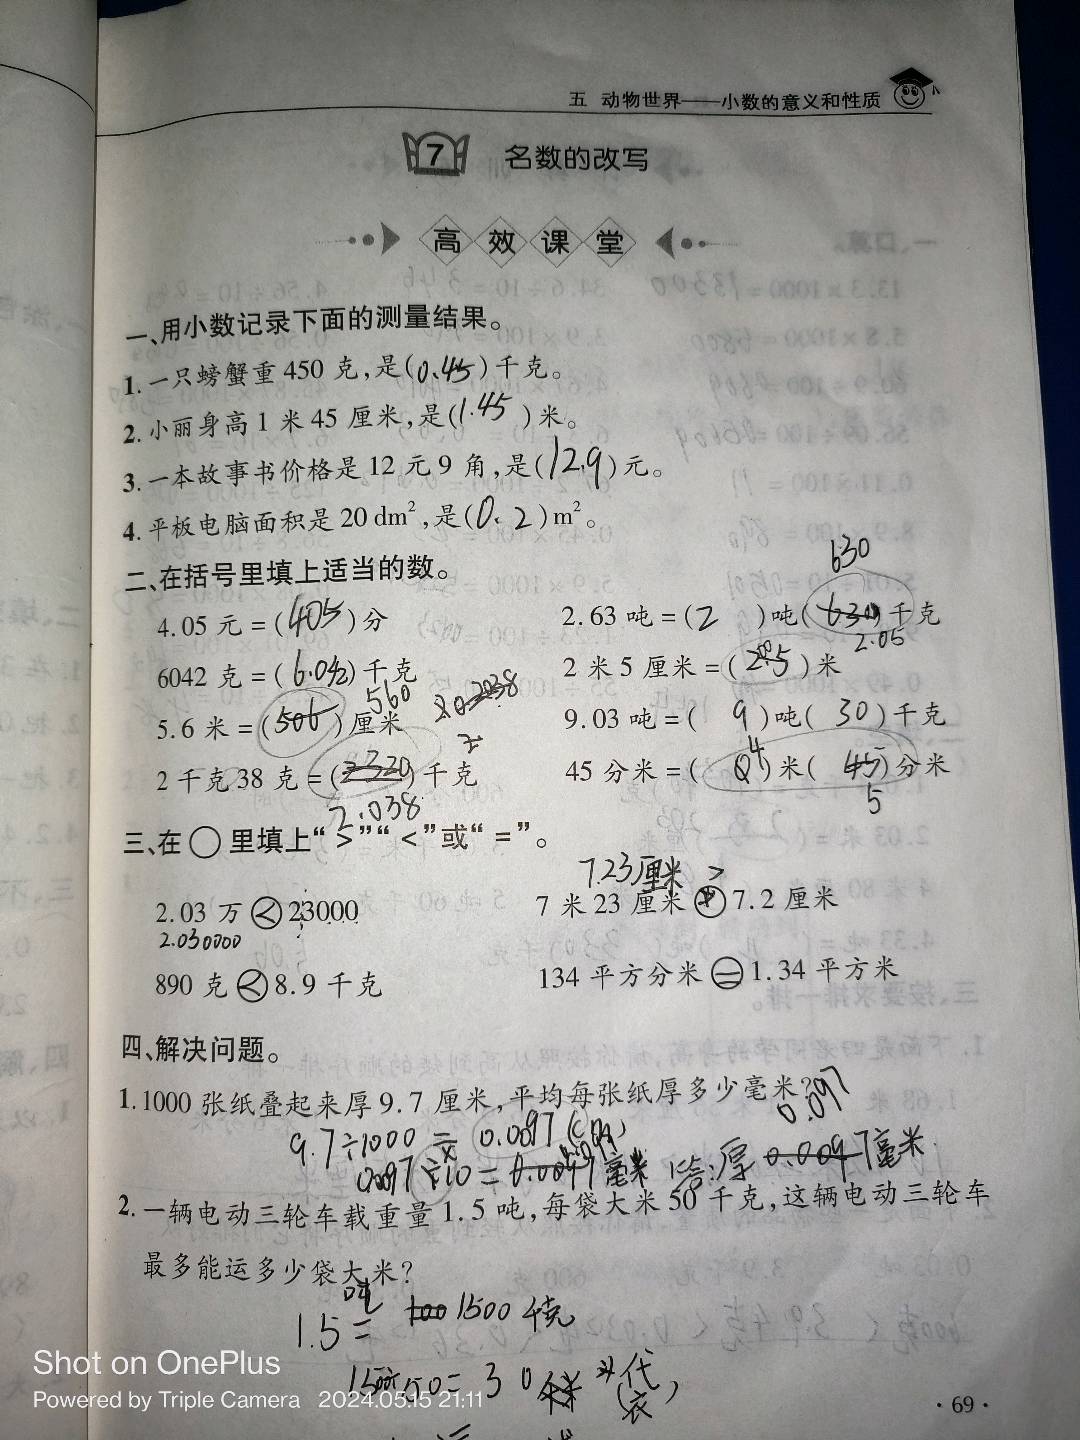 五 动物世界——小数的意义和性质
7 名数的改写
高效课堂
一、用小数记录下面的测量结果。
1. 一只螃蟹重 450 克,是(0.45)千克。
2. 小丽身高 1 米 45 厘米,是(1.45)米。
3. 一本故事书价格是 12 元 9 角,是(12.9)元。
4. 平板电脑面积是 20 dm²,是(0.2)m²。
二、在括号里填上适当的数。
630
4.05 元 = (405)分 2.63 吨 = (2)吨(630)千克
2.05
6042 克 = (6.042)千克 2 米 5 厘米 = (2.5)米
560
5.6 米 = (506)厘米 9.03 吨 = (9)吨(30)千克
4
2 千克 38 克 = ()千克 45 分米 = (0)米(45)分米
2.038 5
三、在○里填上“>”“<”或“=”。
7.23厘米 >
2.03 万 < 23000 7 米 23 厘米 7.2 厘米
2.030000
890 克 < 8.9 千克 134 平方分米 = 1.34 平方米
四、解决问题。
1. 1000 张纸叠起来厚 9.7 厘米,平均每张纸厚多少毫米?
0.097
9.7÷1000 = 0.0097(cm)
0.0097 ÷10 = 0.00097毫米 答:厚 0.0097毫米.
2. 一辆电动三轮车载重量 1.5 吨,每袋大米 50 千克,这辆电动三轮车
最多能运多少袋大米?
吨
1.5 = 1500 千克
1500÷50= 30
Shot on OnePlus
Powered by Triple Camera 2024.05.15 21:11
· 69 ·